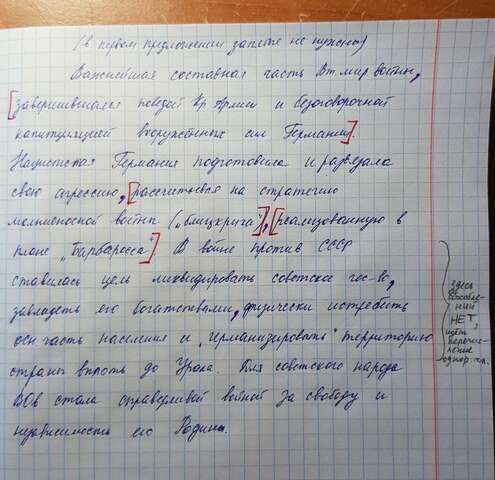 (в первом предложении запятые не нужны)
Важнейшая составная часть Вт мир войны,
[завершившаяся победой Кр Армии и безоговорочной
капитуляцией вооружённых сил Германии].
Нацистская Германия подготовила и развязала
свою агрессию, [рассчитывая на стратегию
молниеносной войны („блицкрига“)], [реализованную в
плане „Барбаросса“]. В войне против СССР
ставилась цель ликвидировать советское гос-во,
завладеть его богатствами, физически истребить
осн часть населения и „германизировать“ территорию
страны вплоть до Урала. Для советского народа
ВОв стала справедливой войной за свободу и
независимость его Родины.
здесь
обособле-
ний
НЕТ,
идёт
перечис-
ление
однор. чл.